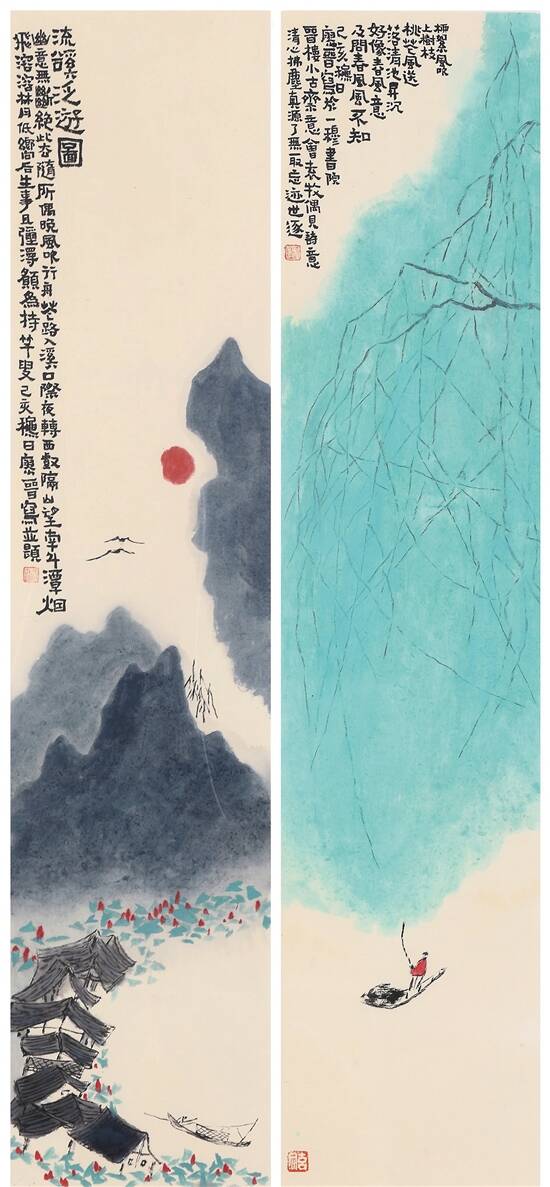 流溪泛游圖
幽意無斷絕此去隨所偶晚風吹行舟花路入溪口際夜轉西壑隔山望南斗潭烟
飛溶溶林月低嚮后生事且彌漫願為持竿叟己亥穐日廖晉寫並題
柳絮風吹
上樹枝
桃花風送
落清池昇沉
好像春風意
及問春風風不知
己亥穐日
廖晉寫於一穆書院
晉樓小古齋意會袁牧偶見詩意
清心拂塵真源了無取妄迹世逐